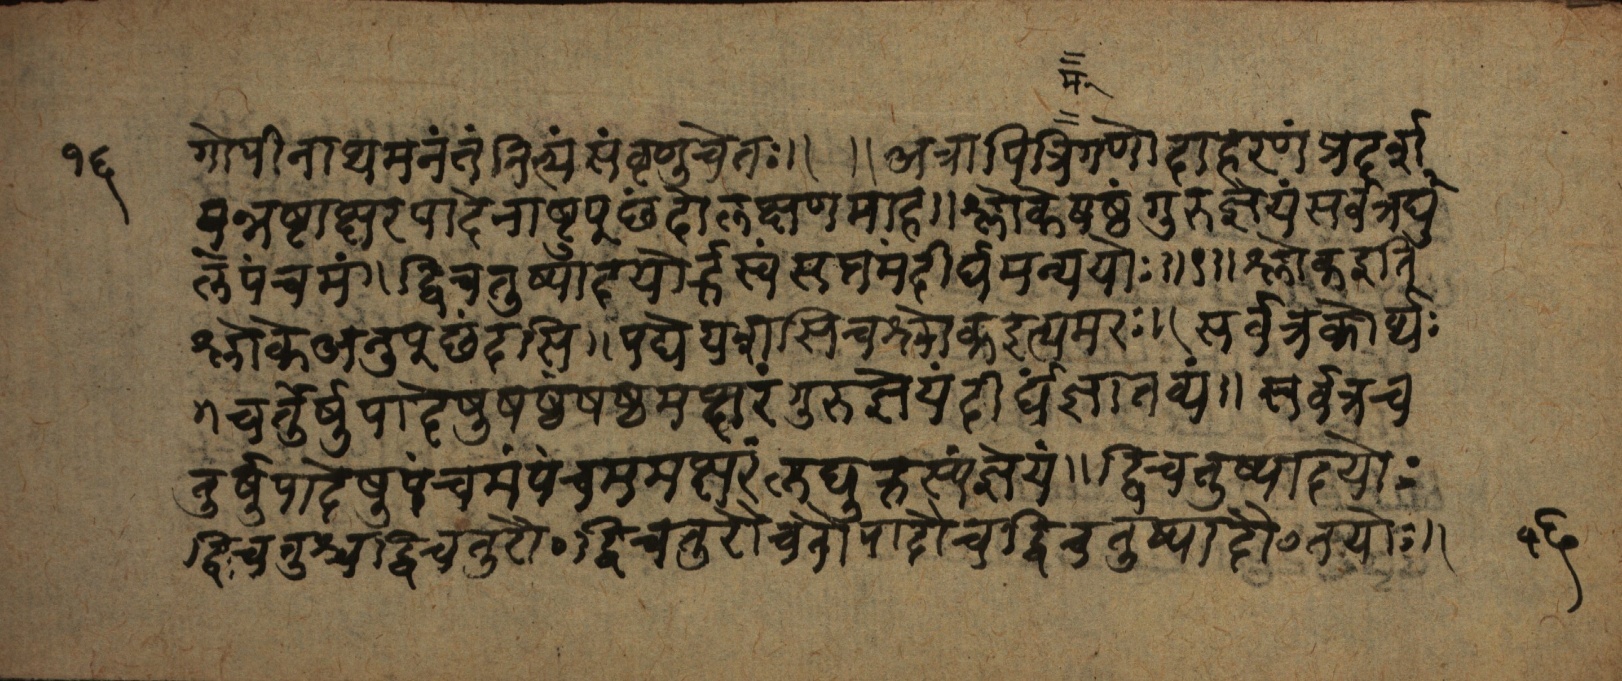 म
१६ गोपीनाथमनंतं नित्यं संवृणुचेतः॥ ॥अत्रापित्रिगणोदाहरणंप्रदर्श्या
पुन्नष्टाक्षरपादेनाष्टुपूछंदोलक्षणमाह॥श्लोकेषष्ठंगुरुज्ञेयंसर्वत्रघु
लपंचमं॥द्विचतुष्पादयोर्ह्रस्वंसप्तमंदीर्घमन्ययोः॥९॥श्लोकइति
श्लोकेअनुपूछंदसि॥पद्येयशसिचश्लोकइत्यमरः॥सर्वत्रकोर्थः
चर्तुर्षुपादेषुषष्ठंषष्ठमक्षरंगुरुज्ञेयंदीर्घंज्ञातव्यं॥सर्वत्रच
तुर्षुपादेषुपंचमंपंचममक्षरंलघुह्रस्वंज्ञेयं॥द्विचतुष्पादयोः
द्विचतुश्चद्विचतुरौ०द्विचतुरौचतौपादौचद्विचतुष्पादौ०तयोः॥ १६